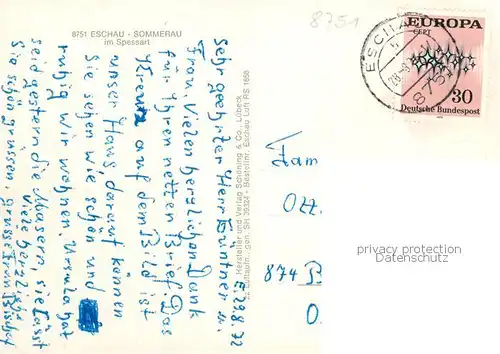 8751 ESCHAU - SOMMERAU
im Spessart
8751
EUROPA
CEPT
30
Deutsche Bundespost
ESCHAU
875
E. 29.8.72
Sehr geehrter Herr Güntner u.
Frau, vielen herzlichen Dank
für Ihren netten Brief. Das
Kreuz auf dem Bild ist
unser Haus, darauf können
Sie sehen wie schön und
ruhig wir wohnen. Ursula hat
seid gestern die Masern, sie lässt
Sie schön grüssen,
Viele herzliche
grüsse Frau
Hersteller und Verlag Schöning & Co., Lübeck
SH 39324 - Bestellnr. Eschau Luft RS 1650
Fam
Ott.
874
privacy protection
Datenschutz